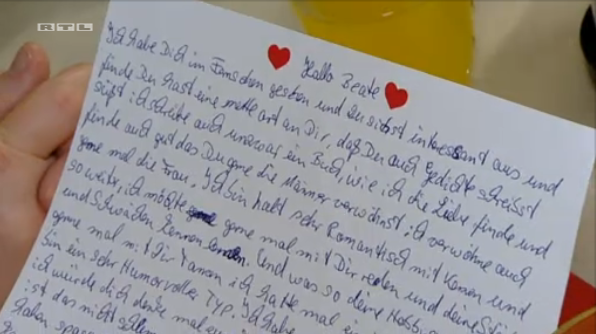 RTL
Hallo Beate
Ich habe Dich im Fernsehen gesehen und Du siehst interessant aus und
finde Du hast eine nette art an Dir, daß Du auch Gedichte schreibst
ich schreibe auch und zwar ein Buch, wie ich die Liebe finde und
finde auch gut das Du gerne die Männer verwöhnst ich verwöhne auch
gerne mal die Frau. Ich bin halt sehr Romantisch mit Kerzen und
so weiter, ich möchte gerne mal mit Dir reden und deine
und Schwächen kennen lernen. Und was so deine Hobbys
gerne mal mit Dir Tanzen ich hatte mal ein
bin ein sehr Humorvoller Typ. Ich habe
ich würde dich denke mal
ist das nicht
haben